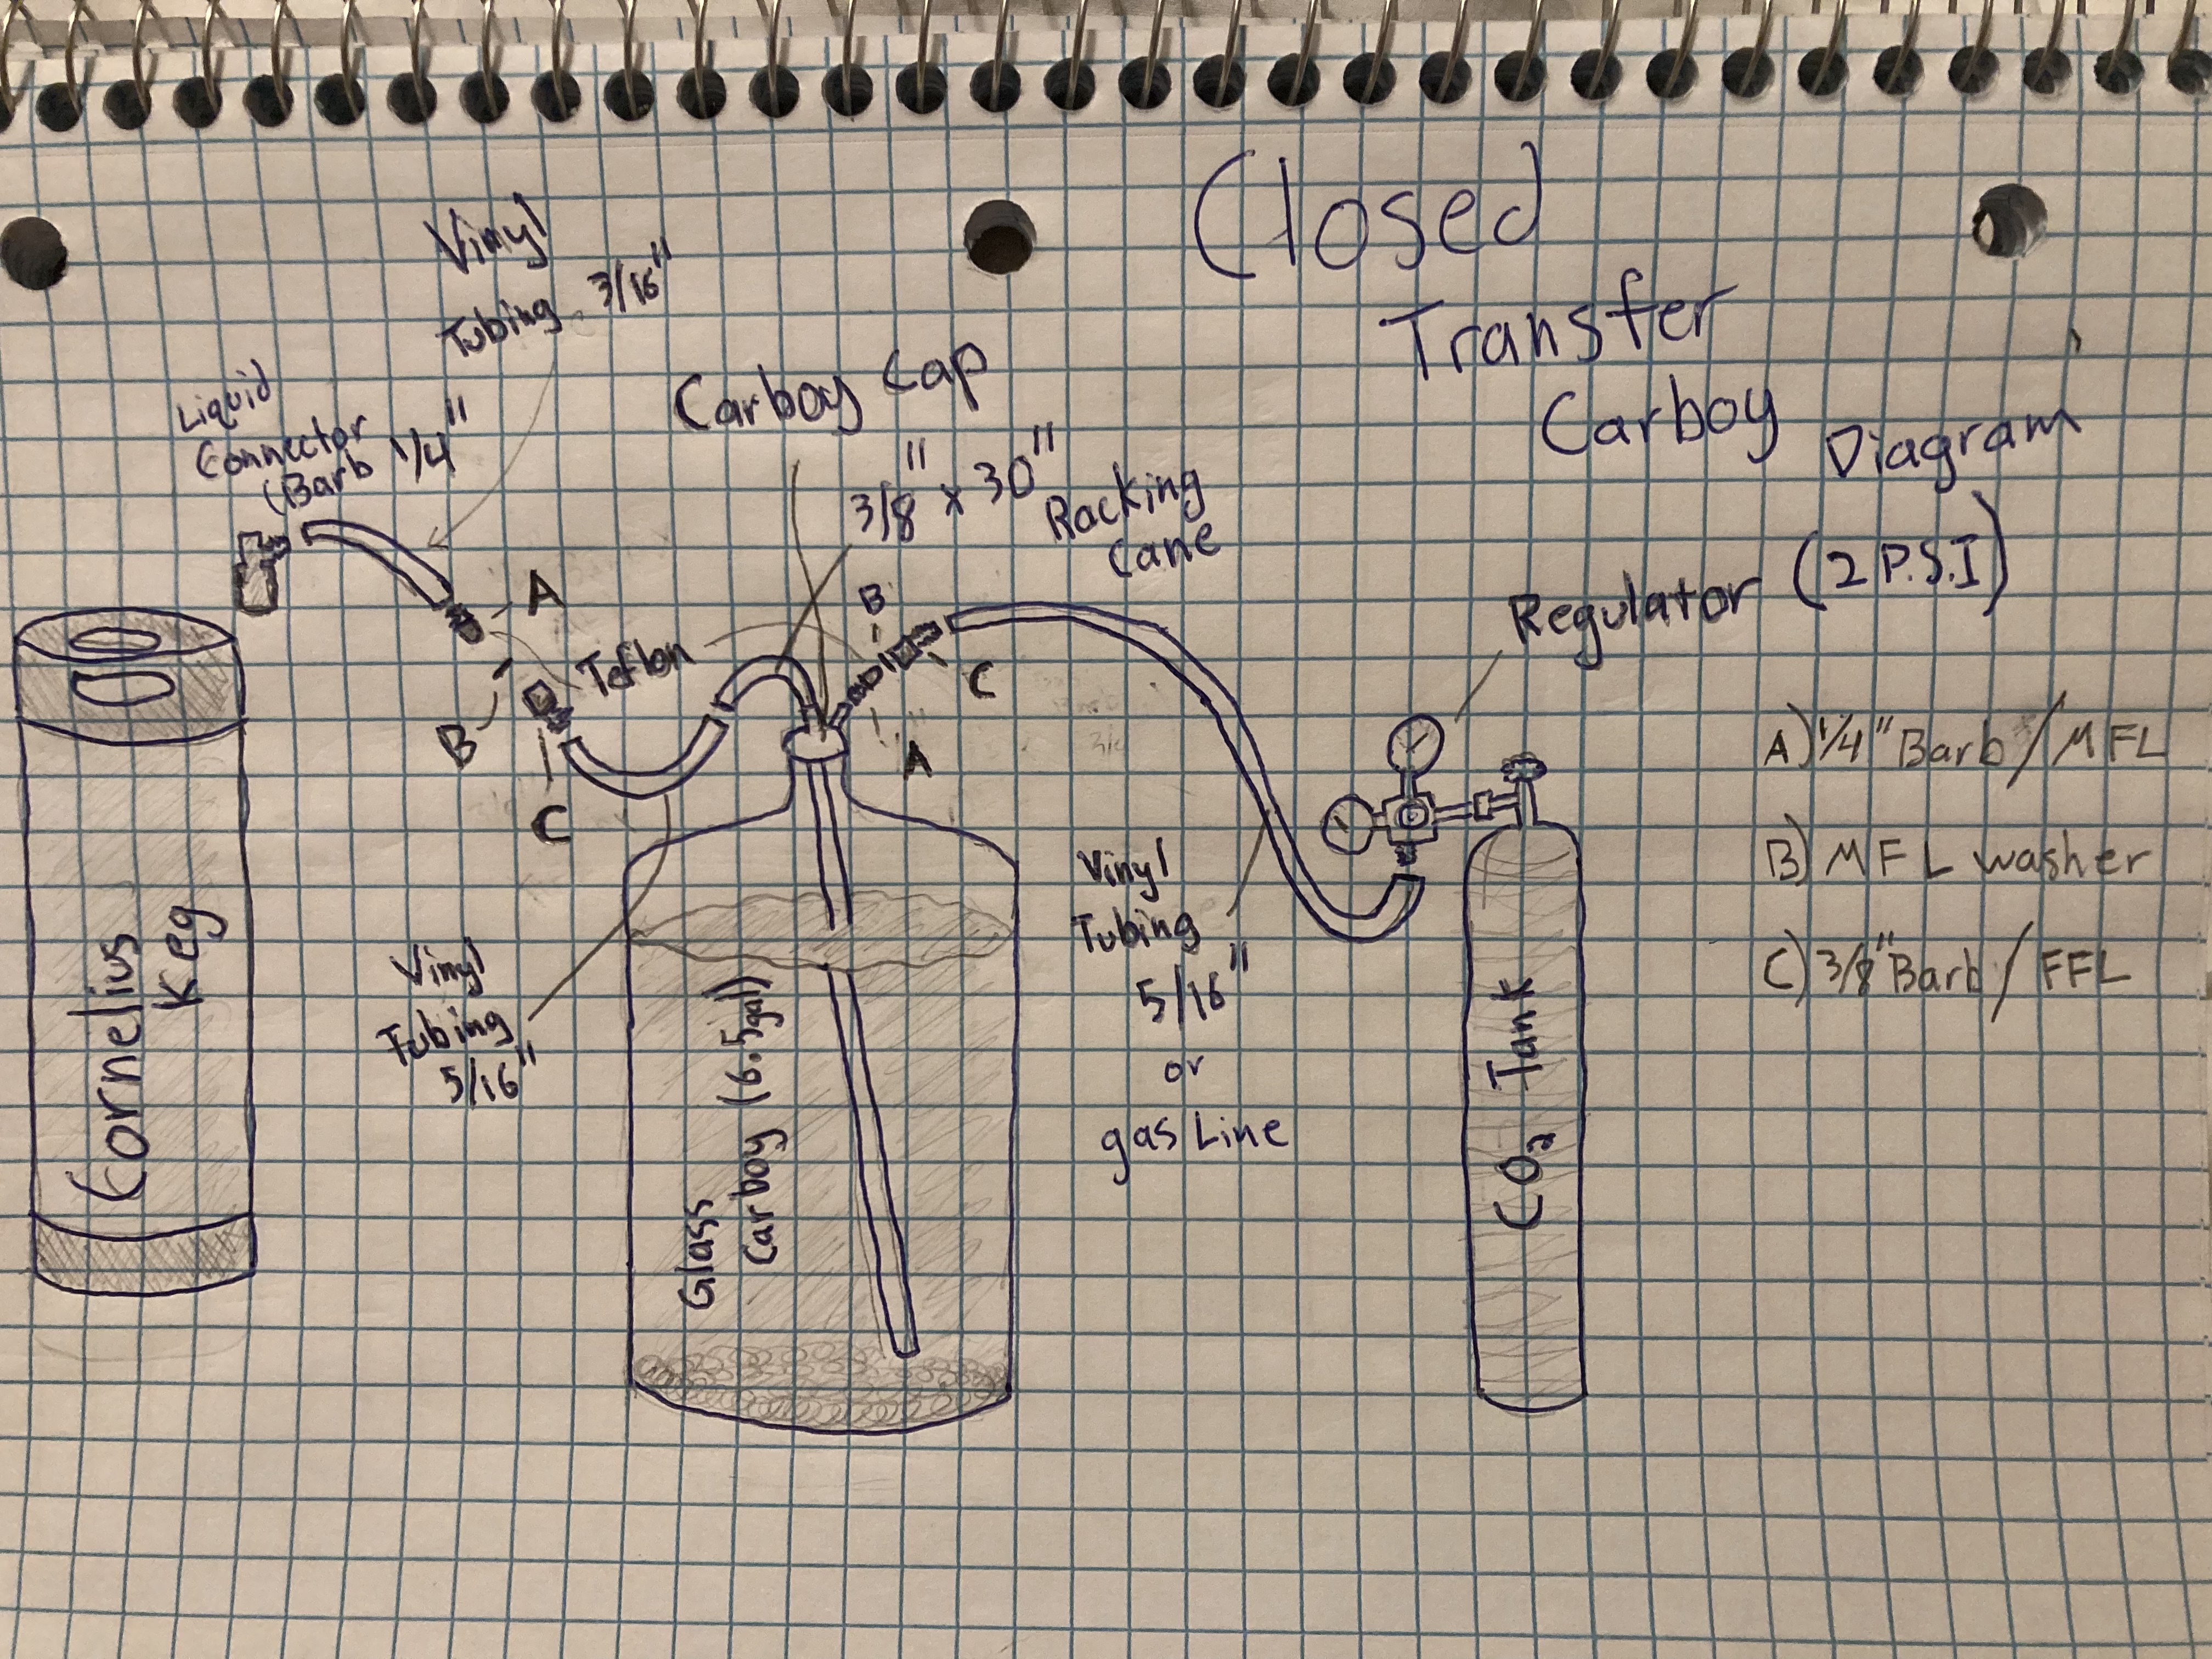 Closed
Transfer
Carboy
Diagram
Vinyl
Tubing 3/16"
Liquid
Connector
(Barb 1/4"
Carboy Cap
3/8" x 30"
Racking
Cane
Regulator (2 P.S.I)
A
B
Teflon
C
B
C
A
A) 1/4" Barb / MFL
B) MFL washer
C) 3/8" Barb / FFL
Vinyl
Tubing
5/16"
Vinyl
Tubing
5/16"
or
gas Line
Cornelius
Keg
Glass
Carboy (6.5gal)
CO2 Tank